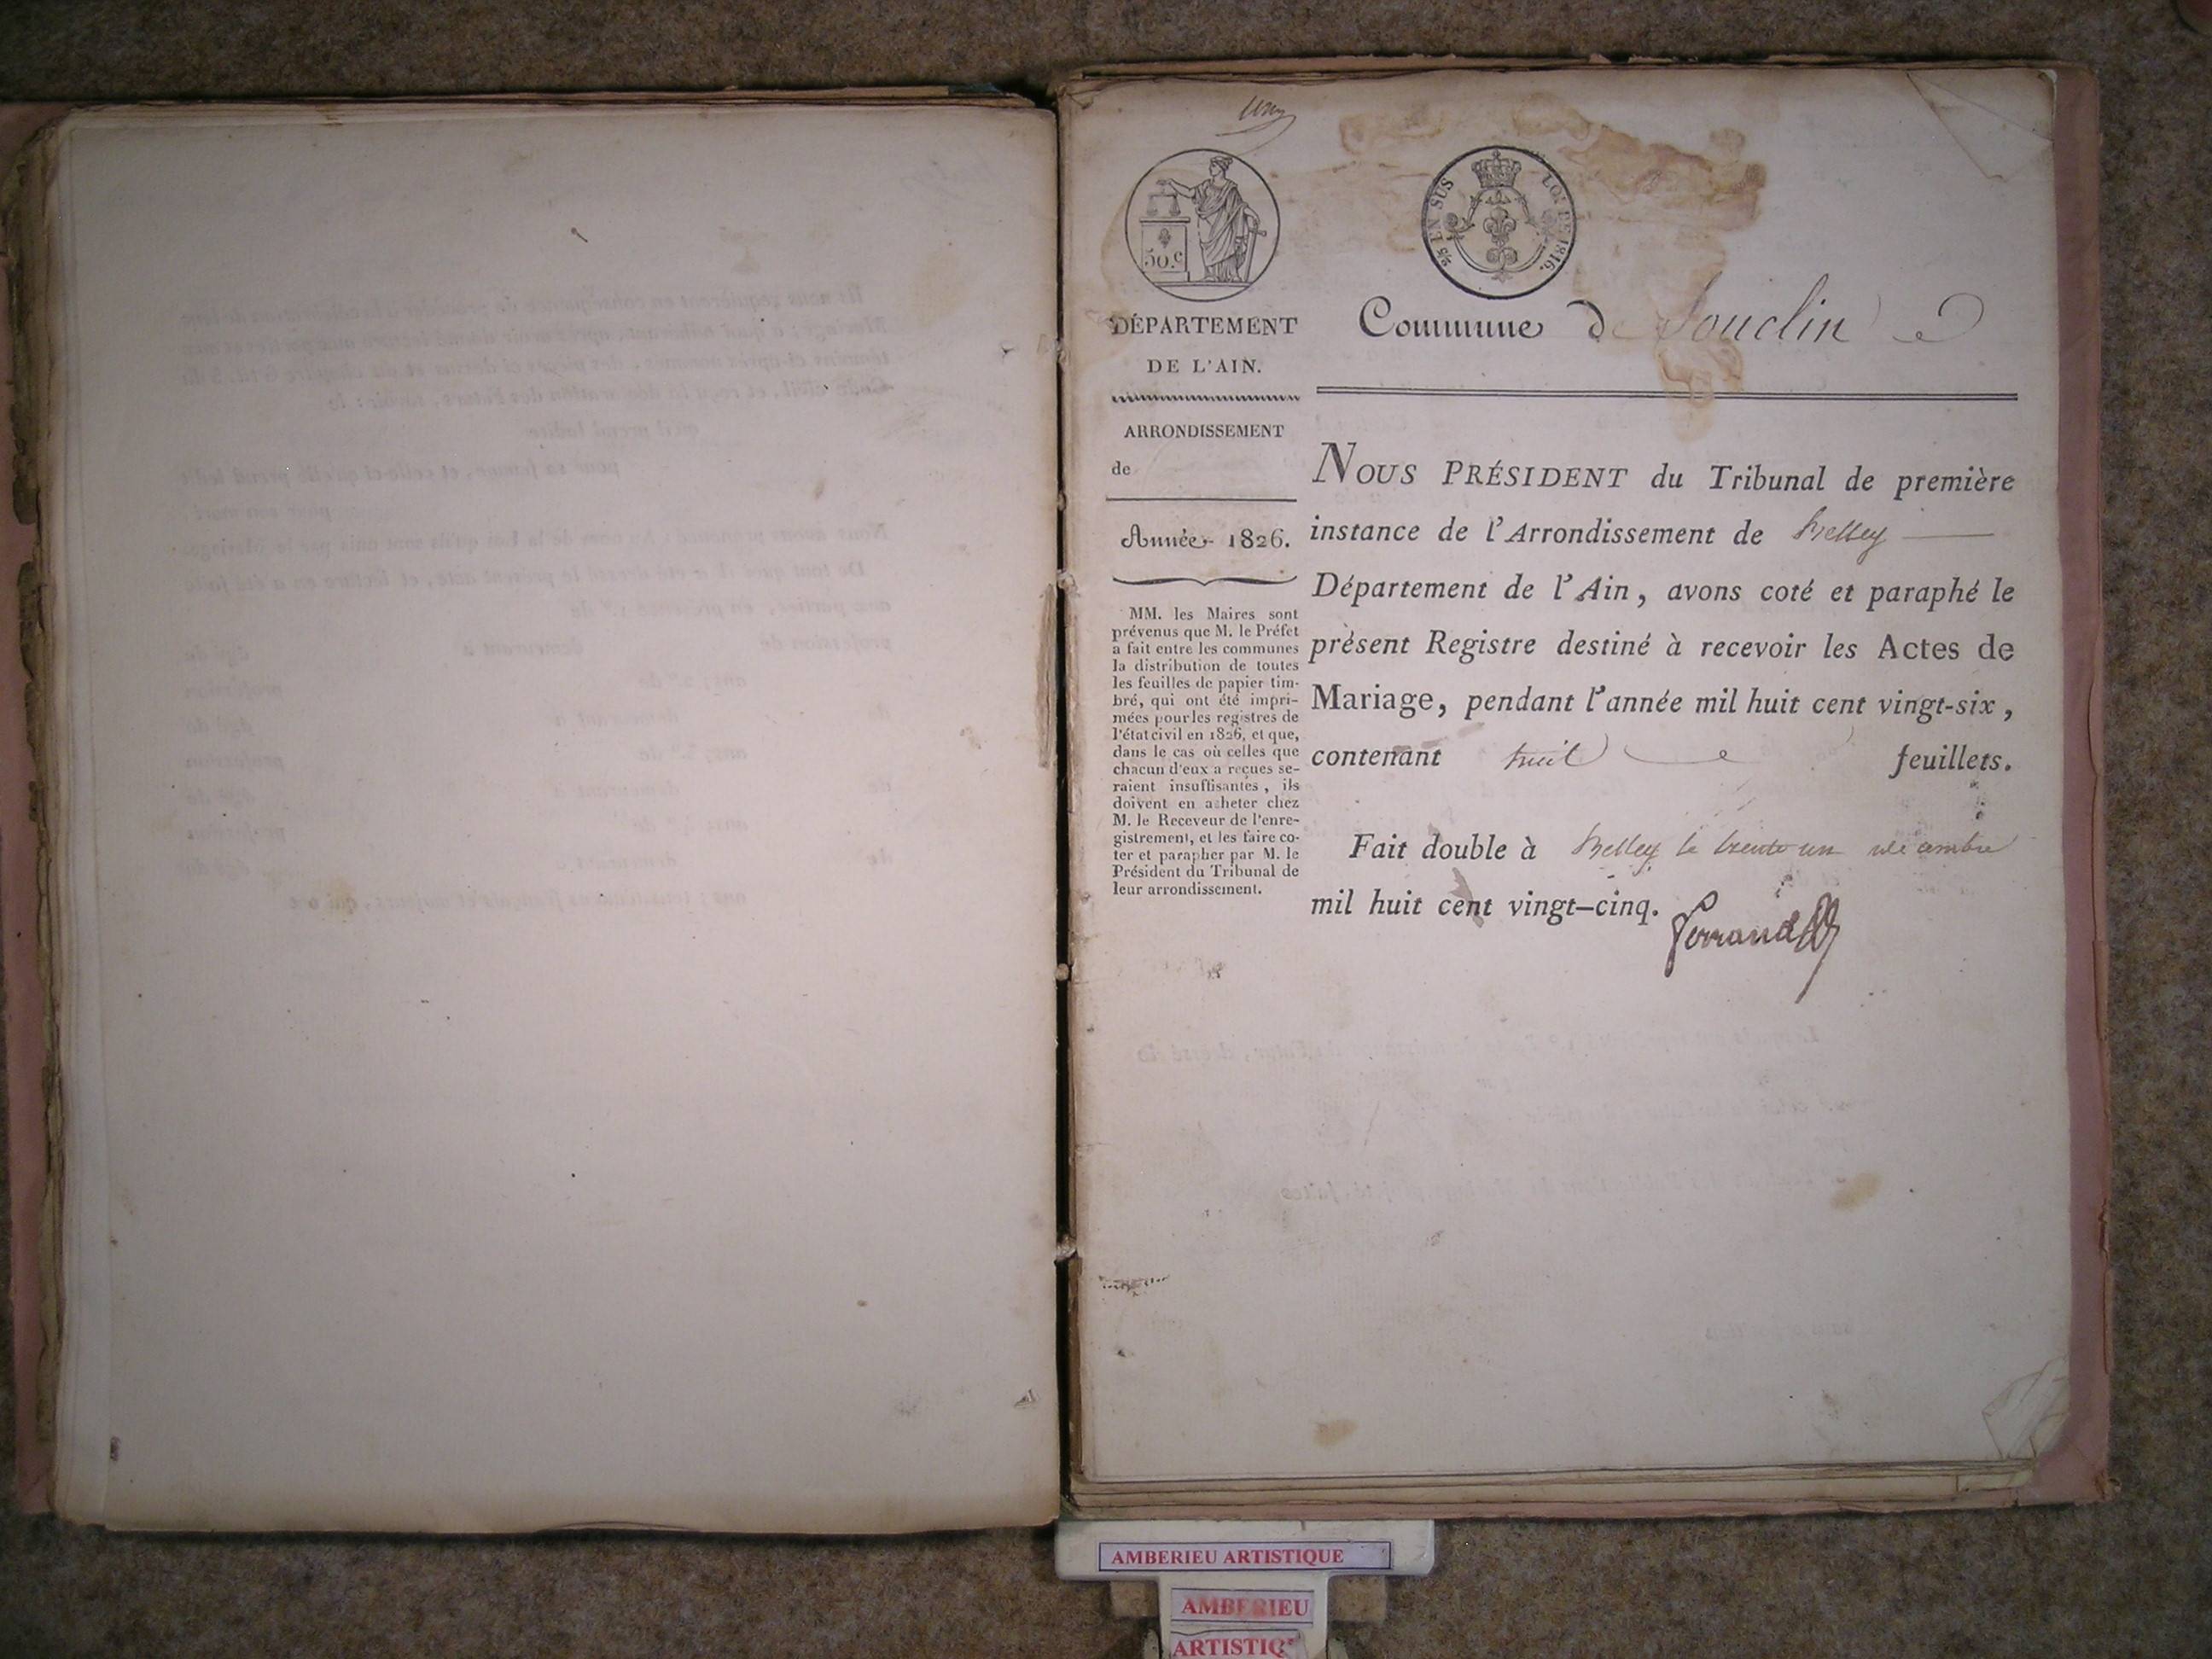 50.c
25 EN SUS
LOI DE 1816.
DÉPARTEMENT
DE L'AIN.
Commune de Souclin
ARRONDISSEMENT
de
Année 1826.
MM. les Maires sont
prévenus que M. le Préfet
a fait entre les communes
la distribution de toutes
les feuilles de papier tim-
bré, qui ont été impri-
mées pour les registres de
l'état civil en 1826, et que,
dans le cas où celles que
chacun d'eux a reçues se-
raient insuffisantes, ils
doivent en acheter chez
M. le Receveur de l'enre-
gistrement, et les faire co-
ter et parapher par M. le
Président du Tribunal de
leur arrondissement.
NOUS PRÉSIDENT du Tribunal de première
instance de l'Arrondissement de Belley
Département de l'Ain, avons coté et paraphé le
présent Registre destiné à recevoir les Actes de
Mariage, pendant l'année mil huit cent vingt-six,
contenant huit feuillets.
Fait double à Belley le trente un décembre
mil huit cent vingt-cinq.
Ferrand
AMBERIEU ARTISTIQUE
AMBERIEU
ARTISTIQ